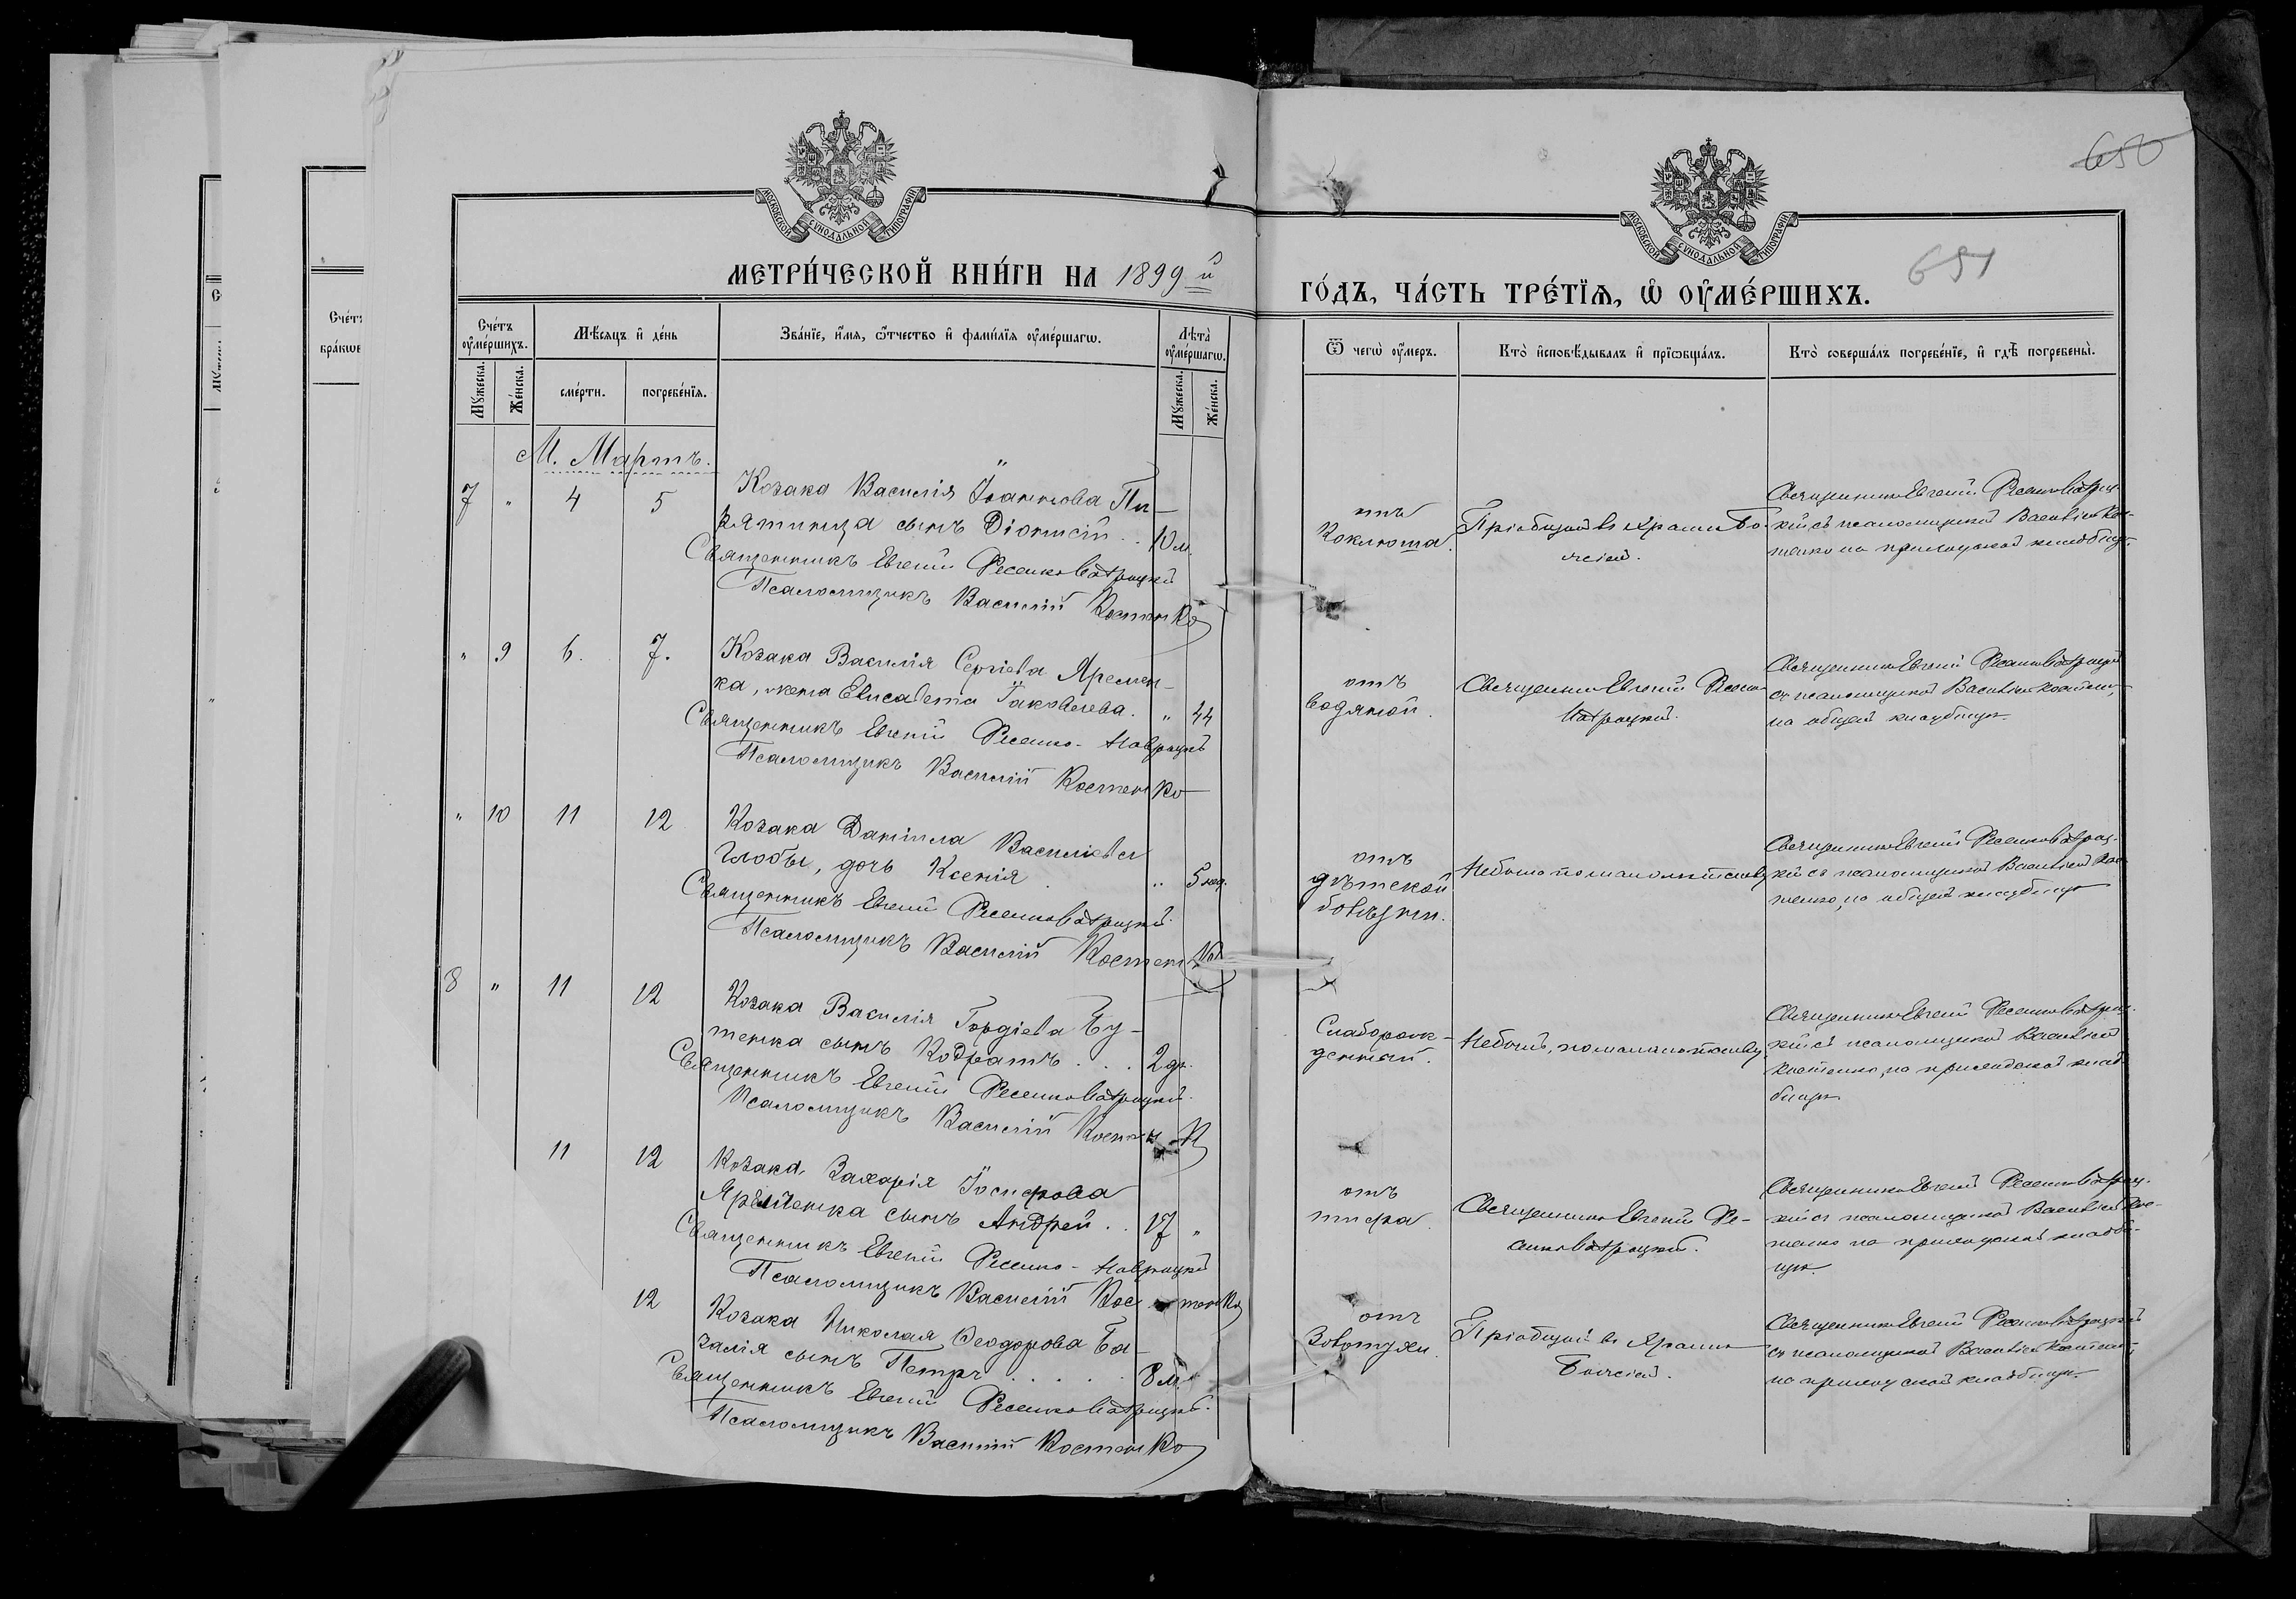 650
651
МОСКОВСКОЙ СѴНОДАЛЬНОЙ ТИПОГРАФІИ
МОСКОВСКОЙ СѴНОДАЛЬНОЙ ТИПОГРАФІИ
МЕТРИ́ЧЕСКОЙ КНИ́ГИ НА 1899 й
ГО́ДЪ, ЧА́СТЬ ТРЕ́ТІѦ, Ѡ҆ ОУ҆МЕ́РШИХЪ.
Сче́тъ
бра́кωв
Сче́тъ оу҆ме́ршихъ.
Мѣ́сяцъ и҆ де́нь
Зва́нїе, и҆́мя, ѻ҆́тчество и҆ фами́лїя оу҆ме́ршагω.
Лѣ́та оу҆ме́ршагω.
Ѿ чегѡ̀ оу҆́меръ.
Кто̀ и҆сповѣ́дывалъ и҆ прїωбща́лъ.
Кто̀ соверша́лъ погребе́нїе, и҆ гдѣ̀ погребены̀.
Му́жеска.
Же́нска.
сме́рти.
погребе́нїя.
Му́жеска.
Же́нска.
М. Мартъ.
7 " 4 5 Козака Василія Іоаннова Пи-
рятинца сынъ Діонисій .. 10 м.
Священникъ Евгеній Ресенко Навроцкій
Псаломщикъ Василій Костенко
отъ
Коклюша.
Пріобщенъ въ храмѣ Бо-
жіемъ.
Священникъ Евгеній Ресенко Навроц-
кій съ псаломщикомъ Василіемъ Кос-
тенко на приходскомъ кладбищѣ.
" 9 6. 7. Козака Василія Сергіева Яремен-
ка, жена Елисавета Іаковлева. " 44
Священникъ Евгеній Ресенко-Навроцкій
Псаломщикъ Василій Костенко
отъ
водяной.
Священникъ Евгеній Ресенко
Навроцкій.
Священникъ Евгеній Ресенко Навроцкій
съ псаломщикомъ Василіемъ Костенко
на общемъ кладбищѣ.
" 10 11 12 Козака Даніила Васильева
Глобы, дочь Ксенія " 5 нед.
Священникъ Евгеній Ресенко Навроцкій
Псаломщикъ Василій Костенко
отъ
дѣтской
болѣзни.
Не былъ по малолѣтству
Священникъ Евгеній Ресенко Навроц-
кій съ псаломщикомъ Василіемъ Кос-
тенко, на общемъ кладбищѣ
8 " 11 12 Козака Василія Гордіева Бу-
тенка сынъ Кодратъ . . . 2 дн.
Священникъ Евгеній Ресенко Навроцкій.
Псаломщикъ Василій
Слаборож-
денный.
Не былъ, по малолѣтству
Священникъ Евгеній Ресенко Навроц-
кій съ псаломщикомъ Василіемъ
Костенко, на приходскомъ клад-
бищѣ
11 12 Козака Захарія Іосифова
Яременка сынъ Андрей . . 17 "
Священникъ Евгеній Ресенко-Навроцкій
Псаломщикъ Василій Костенко
отъ
тифа.
Священникъ Евгеній Ре-
сенко Навроцкій.
Священникъ Евгеній Ресенко Навроц-
кій съ псаломщикомъ Василіемъ Кос-
тенко на приходскомъ кладби-
щѣ.
12 Козака Николая Ѳеодорова Ба-
залія сынъ Петръ . . . . . 8 м.
Священникъ Евгеній Ресенко Навроцкій.
Псаломщикъ Василій Костенко
отъ
Золотухи.
Пріобщенъ въ храмѣ
Божіемъ.
Священникъ Евгеній Ресенко Навроцкій
съ псаломщикомъ Василіемъ Костенко
на приходскомъ кладбищѣ.